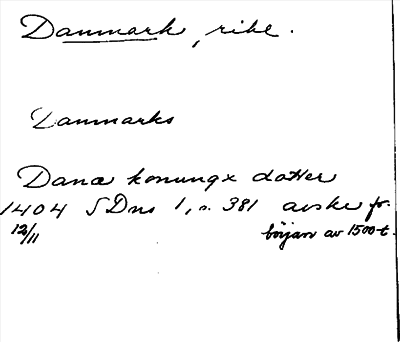 Danmark, rike.
Danmarks
Dana konungx dotter
1404 SDns 1, s. 381 avskr fr.
12/11 början av 1500-t.